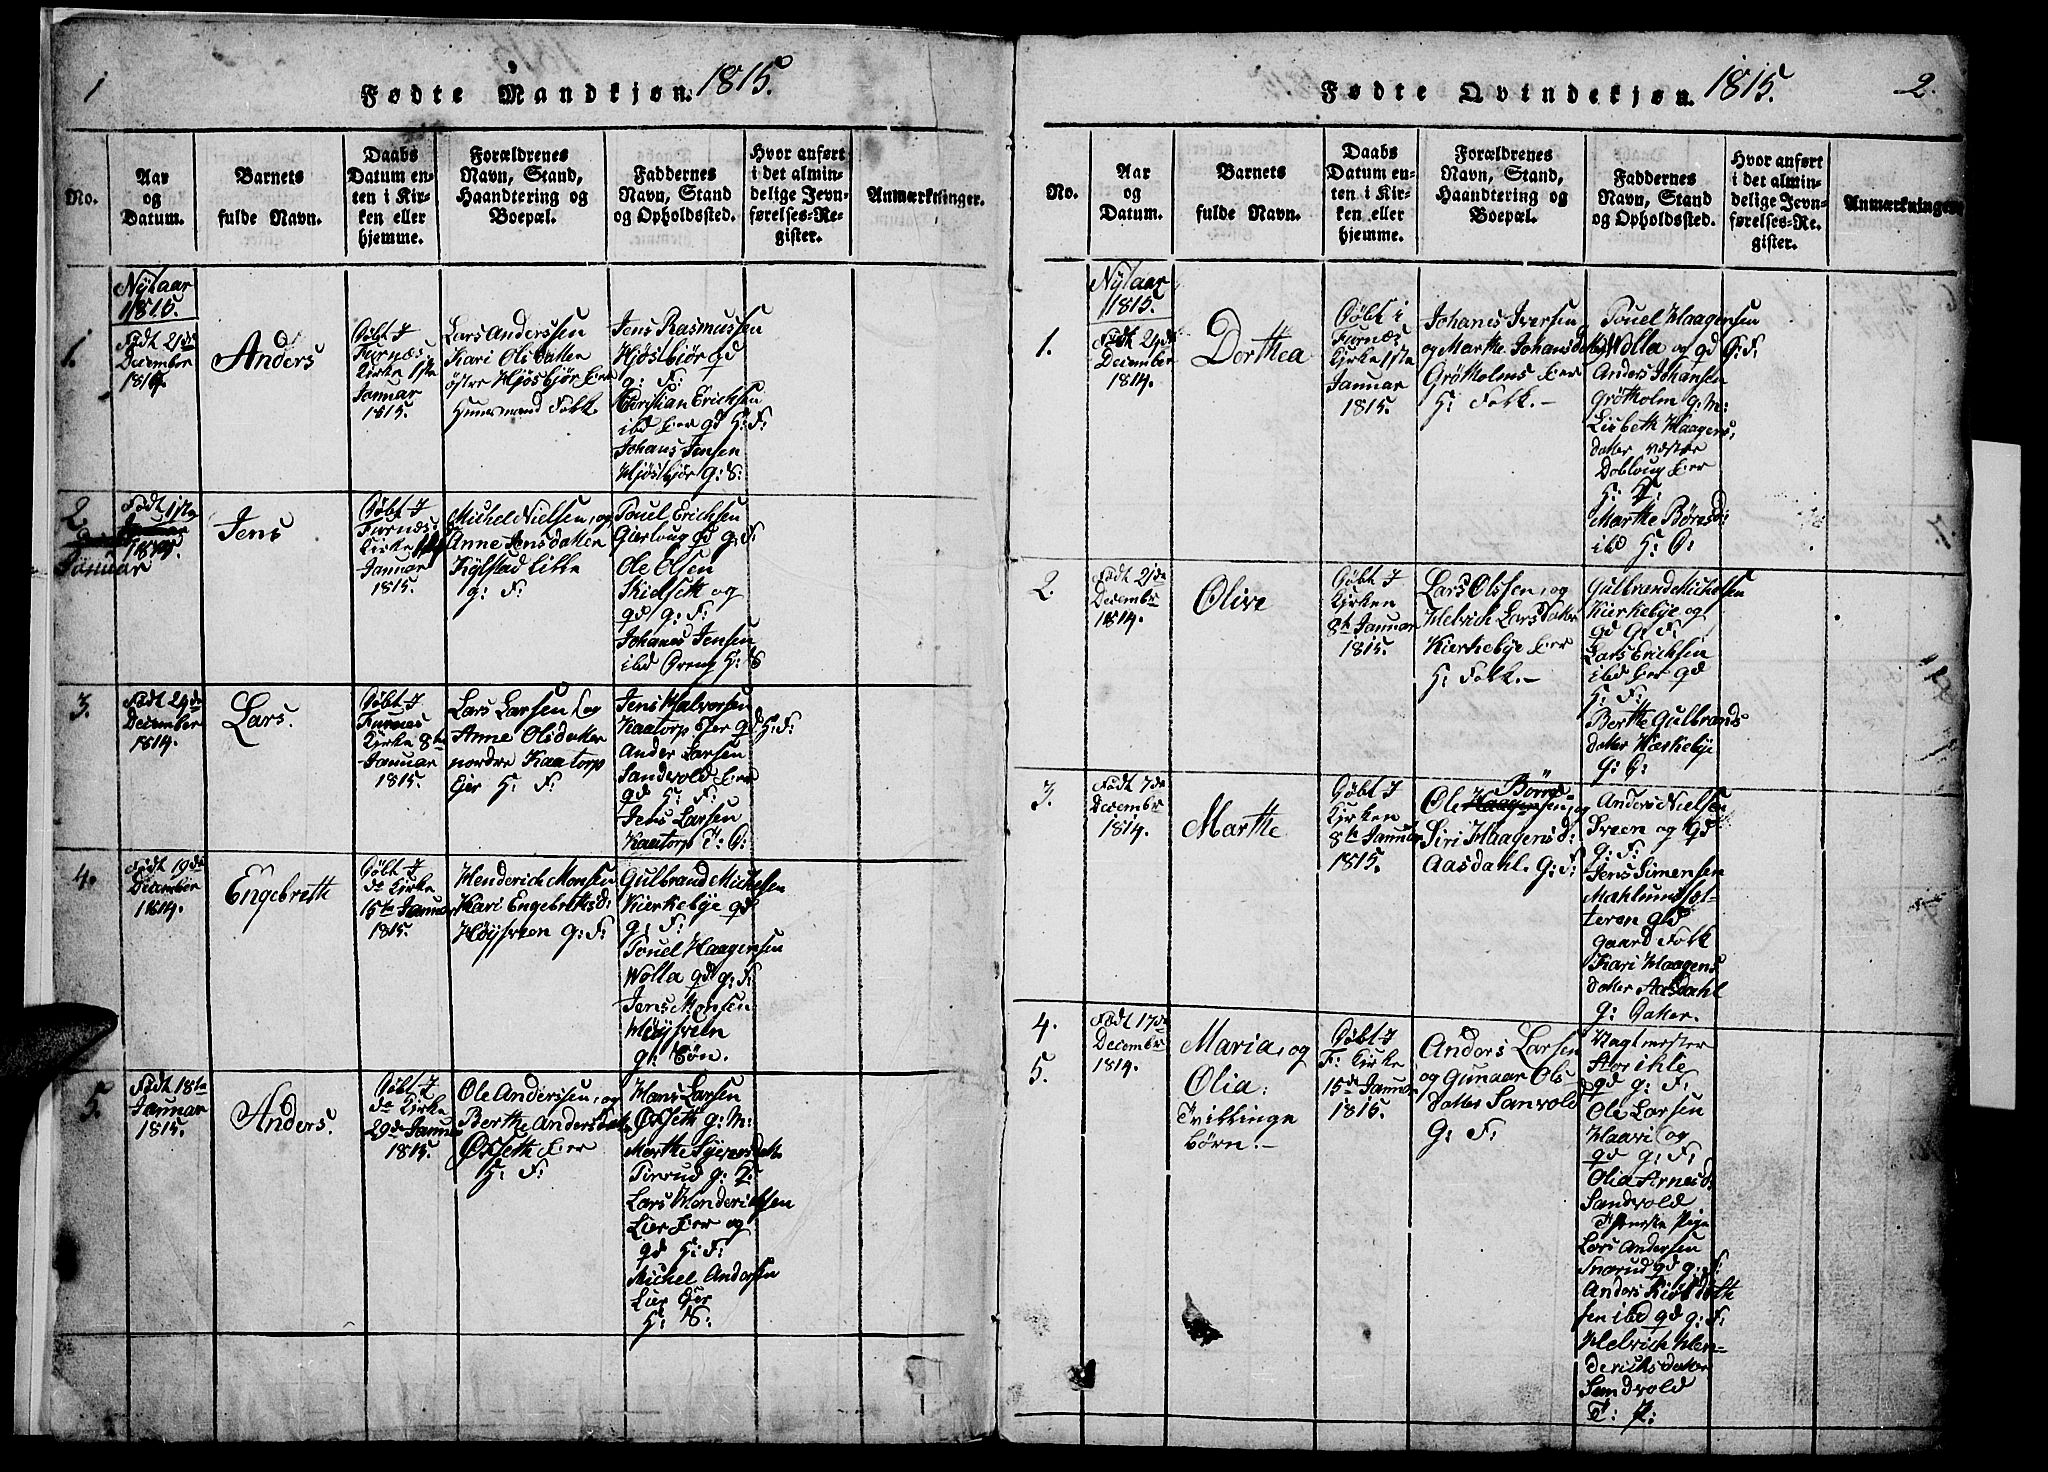 1
Fødte Mandkjøn. 1815.
No.
Aar
og
Datum.
Barnets
fulde Navn.
Daabs
Datum en-
ten i Kir-
ken eller
hjemme.
Forældrenes
Navn, Stand,
Haandtering og
Boepæl.
Faddernes
Navn, Stand
og Opholdssted.
Hvor anført
i det almin-
delige Jevn-
førelses-Re-
gister.
Anmærkninger.
Nÿtaar
1815.
1.
Født 21de
December
1814.
Anders
Døbt I
Furnæs
Kirke 1ste
Januar
1815.
Lars Anderssen
Kari Olsdatter
østre Hjøsbjør Eier
Huusmand Folk.
Jens Rasmussen
Hjøsbjør qd
g: F:
Christian Erichsen
ibd Eier qd H: F:
Johans Jensen
Hjøsbjør g: S:
2
Januar
Født 1ste
Jens
Døbt I
Furnæs
Kirke
Januar
1815.
Michel Nielsen, og
Anne Jensdatter
Kylstad lille
g: F:
Pouel Erichsen
Gierloug qd g: F:
Ole Olsen
Kielseth og
qd g: F:
Johanes Jensen
ibd H: S
3.
Født 29de
December
1814.
Lars.
Døbt I
Furnes
Kirke 8de
Januar
1815.
Lars Larsen og
Anne Olsdatter
nordre Kaatorp
Eier H: F:
Jens Halvorsen
Kaatorp Eier qd H: F:
Ander Larsen
Sandvold Eier
qd H: F:
Jens Larsen
Kaatorp
4.
Født 19de
December
1814.
Engebreth
Døbt I
do Kirke
15te Januar
1815.
Henderich Monsen
Kari Engebrettsd:
Høysveen g: F:
Gulbrand Michelsen
Kierkebye qd
g: F:
Pouel Haagensen
Wolla qd g: F:
Jens Monsen
Høysveen
g: Søn.
5.
Født 18te
Januar
1815.
Anders.
Døbt I
do Kirke
29de Januar
1815.
Ole Anderssen, og
Berthe Andersdatter
Øxseth Eier
H: F:
Hans Larsen
Øxseth g: M:
Marthe
g: P:
Lars Henderichsen
Lier Eier og
qd H: F:
Michel Andersen
Lier Eier
H: S:
2.
Fødte Qvindekjøn. 1815.
No.
Aar
og
Datum.
Barnets
fulde Navn.
Daabs
Datum en-
ten i Kir-
ken eller
hjemme.
Forældrenes
Navn, Stand,
Haandtering og
Boepæl.
Faddernes
Navn, Stand
og Opholdssted.
Hvor anført
i det almin-
delige Jevn-
førelses-Re-
gister.
Anmærkninger
Nÿtaar
1815.
1.
Født 24de
December
1814.
Dorthea
Døbt i
Furnæs
Kirke 1ste
Januar
1815.
Johanes Iversen
og Marthe Johansdatter
Grøtholms Eier
H: Folk.-
Pouel Haagensen
Wolla og qd G: F:
Anders Johansen
Grøtholm g: M:
Lisbeth Haagens
datter vestre
Dobloug Eier
H: P:
Marthe Børesd:
ibd H: D:
2.
Født 21de
Decembr
1814.
Olive
Døbt I
Kirken
8de Januar
1815.
Lars Olssen, og
Helvich Larsdatter
Kierkebye Eier
H: Folk.-
Gulbrand Michelsen
Kierkebye og
qd g: F:
Lars Erichsen
ibd Eier qd
H: F:
Berthe Gulbrands
datter Kierkebye
g: D:
3.
Født 7de
Decembr
1814.
Marthe
Døbt I
Kirken
8de Januar
1815.
Børre
Ole Haagensen, og
Siri Haagensd:
Aasdahl. G: F:
Anders Nielsen
Sveen og qd
g: F:
Jens Simensen
teren qd
gaard Folk
Kari Haagens
datter Aasdahl
g: Datter.
4.
5.
Født 17de
Decembr
1814.
Maria, og
Olia:
Tvillinge
børn.-
Døbt I
F: Kirke
15de Januar
1815.
Anders Larsen
og Gunaar Ols-
datter Sanvold
G: F:
Vagtmester
qd g: F:
Ole Larsen
Haari og
qd g: F:
Olia Arnesd:
Sandvold
Tieneste Pige
Lars Andersen
Snarud qd g: F:
Anders
sen ibd qd g: F:
Helvich Hen-
derichsdatter
Sandvold
T: P: